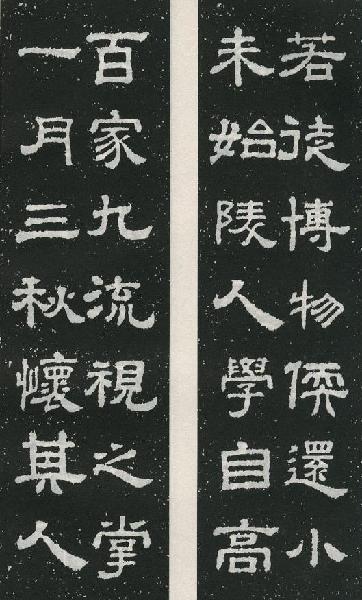 若徒博物儒還小
未始陵人學自高
百家九流視之掌
一月三秋懷其人